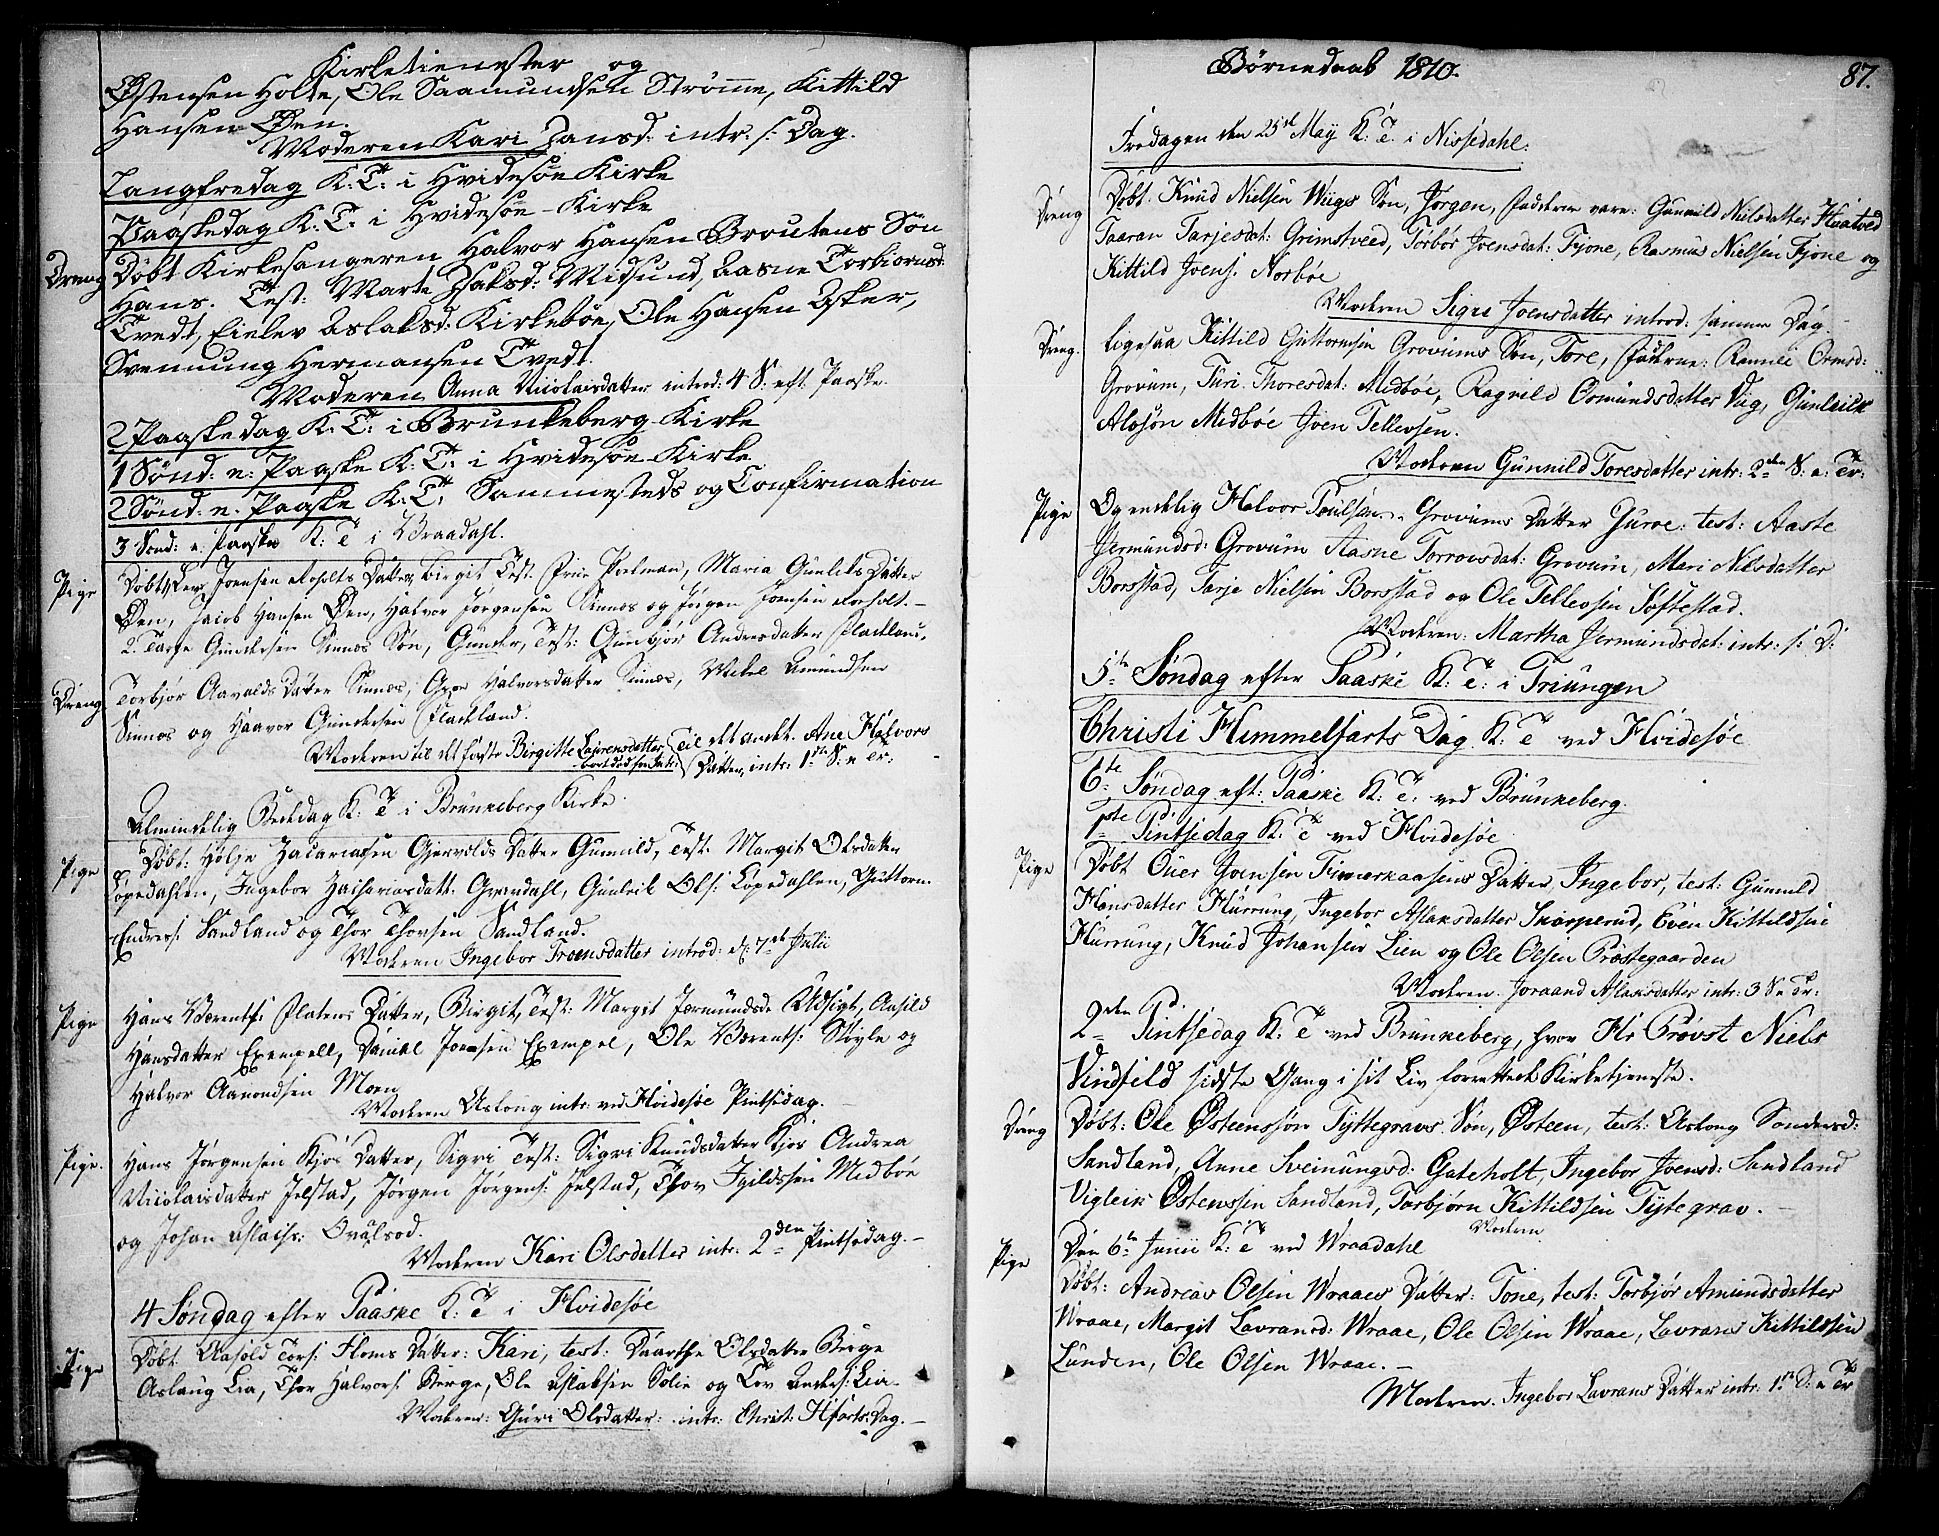 Kirketienester og
Østensen Holte, Ole Saamundsen Strømme, Kittild
Hansen Øen.
Moderen Kari Jansd: intr: s: Dag.
Langfredag K: T: i Hvidesøe Kirke
Paaskedag K: T: i Hvidesøe Kirke
Dreng Døbt Kirkesangeren Halvor Hansen Broutens Søn
Hans. Test: Marte Isaksd: Midsund, Aasne Torbiornsd:
Tvedt, Eielev Aslaksd: Kirkebøe, Ole Hansen Asker,
Svennung Hermansen Tvedt.
Moderen Anna Nicolaisdatter introd: 4 S: eft. Paaske.
2 Paaskedag K: T: i Brunkeberg Kirke
1 Sønd: e: Paaske K: T: i Hvidesøe Kirke
2 Sønd: e: Paaske K: T: Sammesteds og Confirmation
3 Sønd: e: Paaske K: T: i Vraadahl.
Pige Døbt Joensen Datter Birgit Test. Maria Gunleks Datter
Øen, Jacob Hansen Øen, Halvor Jørgensen Sinnes og Jørgen Joensen
2. Tarje Gundersen Sinnes Søn, Gunder, Test: Gunbjør Andresdatter Flackland,
Dreng Torbjør Aavalds Datter Sinnes, Halvorsdatter Sinnes, Mikel Amundsen
Sinnes og Haavor Gundersen Flackland.
Moderen til det første Birgitte Lavrensdatter Til det andet. Ane Halvors
Datter, intr: 1ste S: e Tr:
Almindelig Bededag K: T: i Brunkeberg Kirke.
Pige Døbt: Hølje Zacariasen Gjervolds Datter Gunnild, Test: Margit Olsdatter
Løpedahlen, Ingebor Zachariasdatt: Grondahl, Gunleik Ols: Løpedahlen, Guttorm
Endres: Sandland og Thor Thorsen Sandland.
Moderen Ingebor Troensdatter introd: d: 7de Julii
Pige Hans Berents: Flatens Datter, Birgit, Test: Margit Jermundsd: Udsigt, Aasild
Hansdatter Exempell, Daniel Joensen Exempel, Ole Berents: Støyle og
Halvor Aamondsen Moen
Moderen Aslong intr: ved Hvidesøe Pintsedag.
Pige. Hans Jørgensen Kjøs Datter, Sigri Test: Sigri Knudsdatter Kjos Andrea
Nicolaisdatter Jelstad, Jørgen Jørgens: Jelstad, Thor Igildssen Midbøe
og Johan Aslachs:
Moderen Kari Olsdatter intr: 2den Pintsedag.
4 Søndag efter Paaske K: T: i Hvidesøe
Pige Døbt Aasold Tors: Floms Datter: Kari, test: Daarthe Olsdatter Berge
Aslaug Lia, Thor Halvors: Berge, Ole Aslaksen Solie og Tov Anders: Lia.
Moderen: Guri Olsdatter: intr: Christ: Hfarts: Dag.
Børnedaab 1810.
87.
Fredagen den 25de May K: T: i Nissedahl:
Dreng Døbt. Knud Nielsen Wiigs Søn, Jørgen, Fadderne vare: Gunnild Nielsdatter Hvatved
Taaran Tarjesdat: Grimstveed, Torbør Joensdat: Fjone, Rasmus Nielsen Fjone og
Kittild Joens: Norbøe
Moderen Sigri Joensdatter introd: samme Dag.
Dreng. Ligesaa Kittild Guttormsen Grovums Søn, Tore, Fadderne: Rannei Ormsd:
Grovum, Turi Thoresdat: Midbøe, Ragnild Osmundsdatter Viig, Gunleik
Alosøn Midbøe Joen Tellevsen.
Moderen Gunnild Toresdatter intr: 2den S: e: Tr:
Pige Og endelig Halvor Poulsøn Grovums Datter Gurve: test: Aaste
Jermundsd: Grovum Aasne Torrovsdat: Grovum, Mari Nilsdatter
Borsstad, Tarje Nielsen Borsstad og Ole Tellevsen Søftestad.
Moderen: Martha Jermundsdat: intr: s: D:
5te Søndag efter Paaske K: T: i Triungen
Christi Himmelfarts Dag K: T: ved Hvidesøe
6te Søndag eft: Paaske K: T: ved Brunkeberg.
1ste Pintsedag K: T: ved Hvidesøe
Pige Døbt Ouer Joensen Datter, Ingebor, test: Gunnild
Hansdatter Hurrung, Ingebor Aslaksdatter Skarperud, Even Kittildsen
Hurrung, Knud Johansen Lien og Ole Olsen Præstegaarden
Moderen. Joraand Aslaksdatter intr: 3 S. e Tr:
2den Pintsedag K: T: ved Brunkeberg, hvor Hr Provst Niels
Vindfeld sidste Gang i sit Liv forrettede Kirketjeneste.
Dreng Døbt: Ole Østenssøn Tyttegravs Søn, Østeen, test: Aslong Sondersd:
Sandland, Anne Sveinungsd: Gateholt, Ingebor Joensd: Sandland
Vigleik Østenssen Sandland, Torbjørn Kittildsen Tytegrav.
Moderen
Den 6te Junii K: T: ved Wraadahl
Pige Døbt: Andreas Olsen Wraaes Datter: Tone, test: Torbjør Amundsdatter
Wraae, Margit Lavransd: Wraae, Ole Olsen Wraae, Lavrans Kittildsen
Lunden, Ole Olsen Wraae.
Moderen. Ingebor Lavrans Datter intr: 1ste S: e Tr